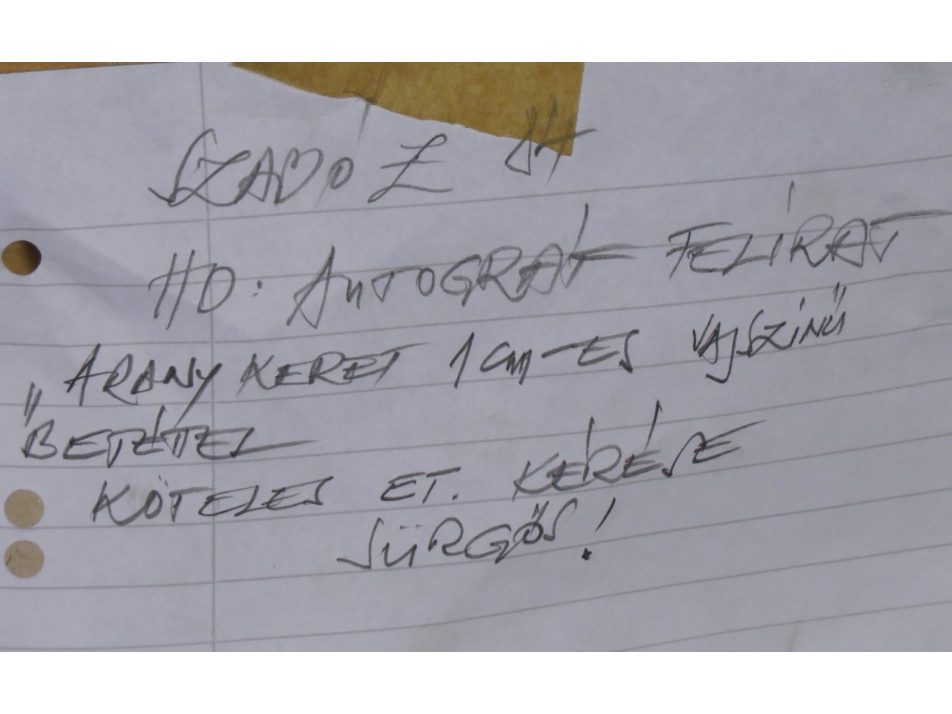 SZABÓ Z
HD. AUTOGRÁF FELIRAT
„ARANY KERET 1 cm-ES VAJSZÍNŰ
BETÉTTEL
KÖTELES ET. KÉRÉSE
SÜRGŐS!